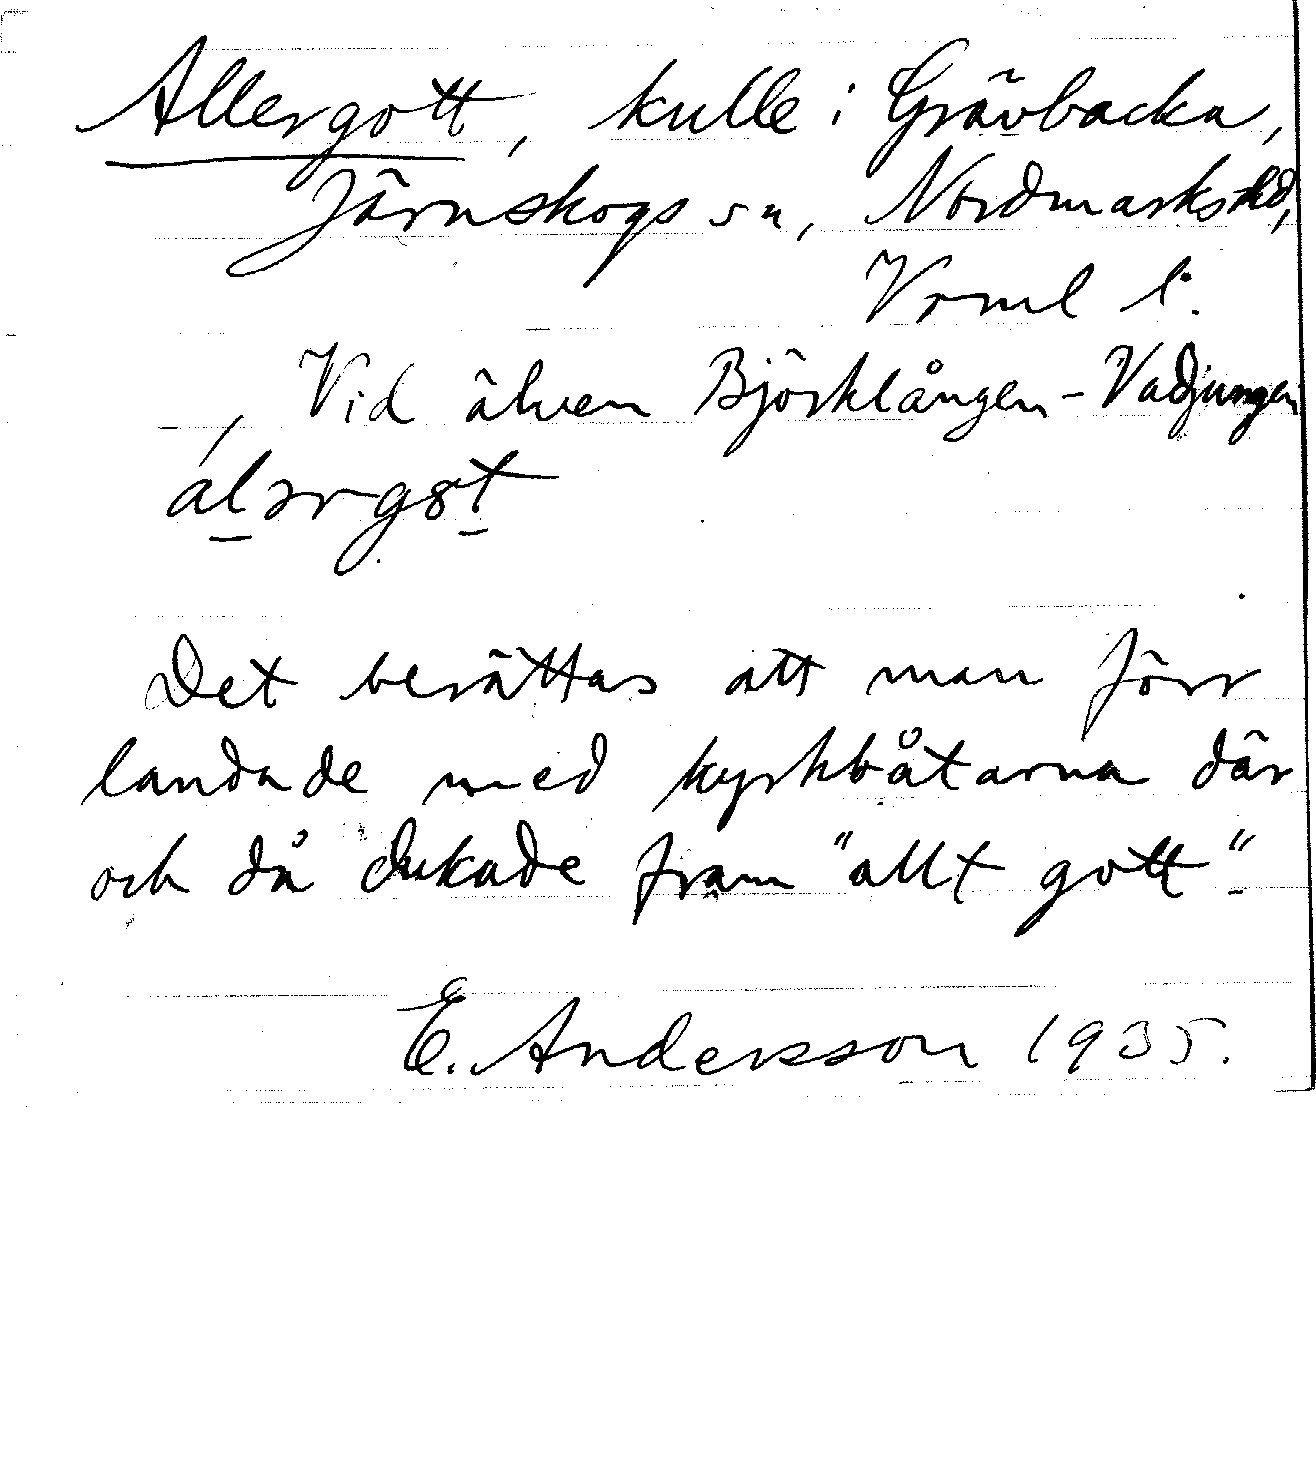 Allergott, kulle i Grävbacka,
Järnskogs sn, Nordmarks hd,
Vrml l.
Vid älven Björklången - Vadjungen
alərgɞt
Det berättas att man förr
landade med kyrkbåtarna där
och då dukade fram "allt gott".
E. Andersson 1935.